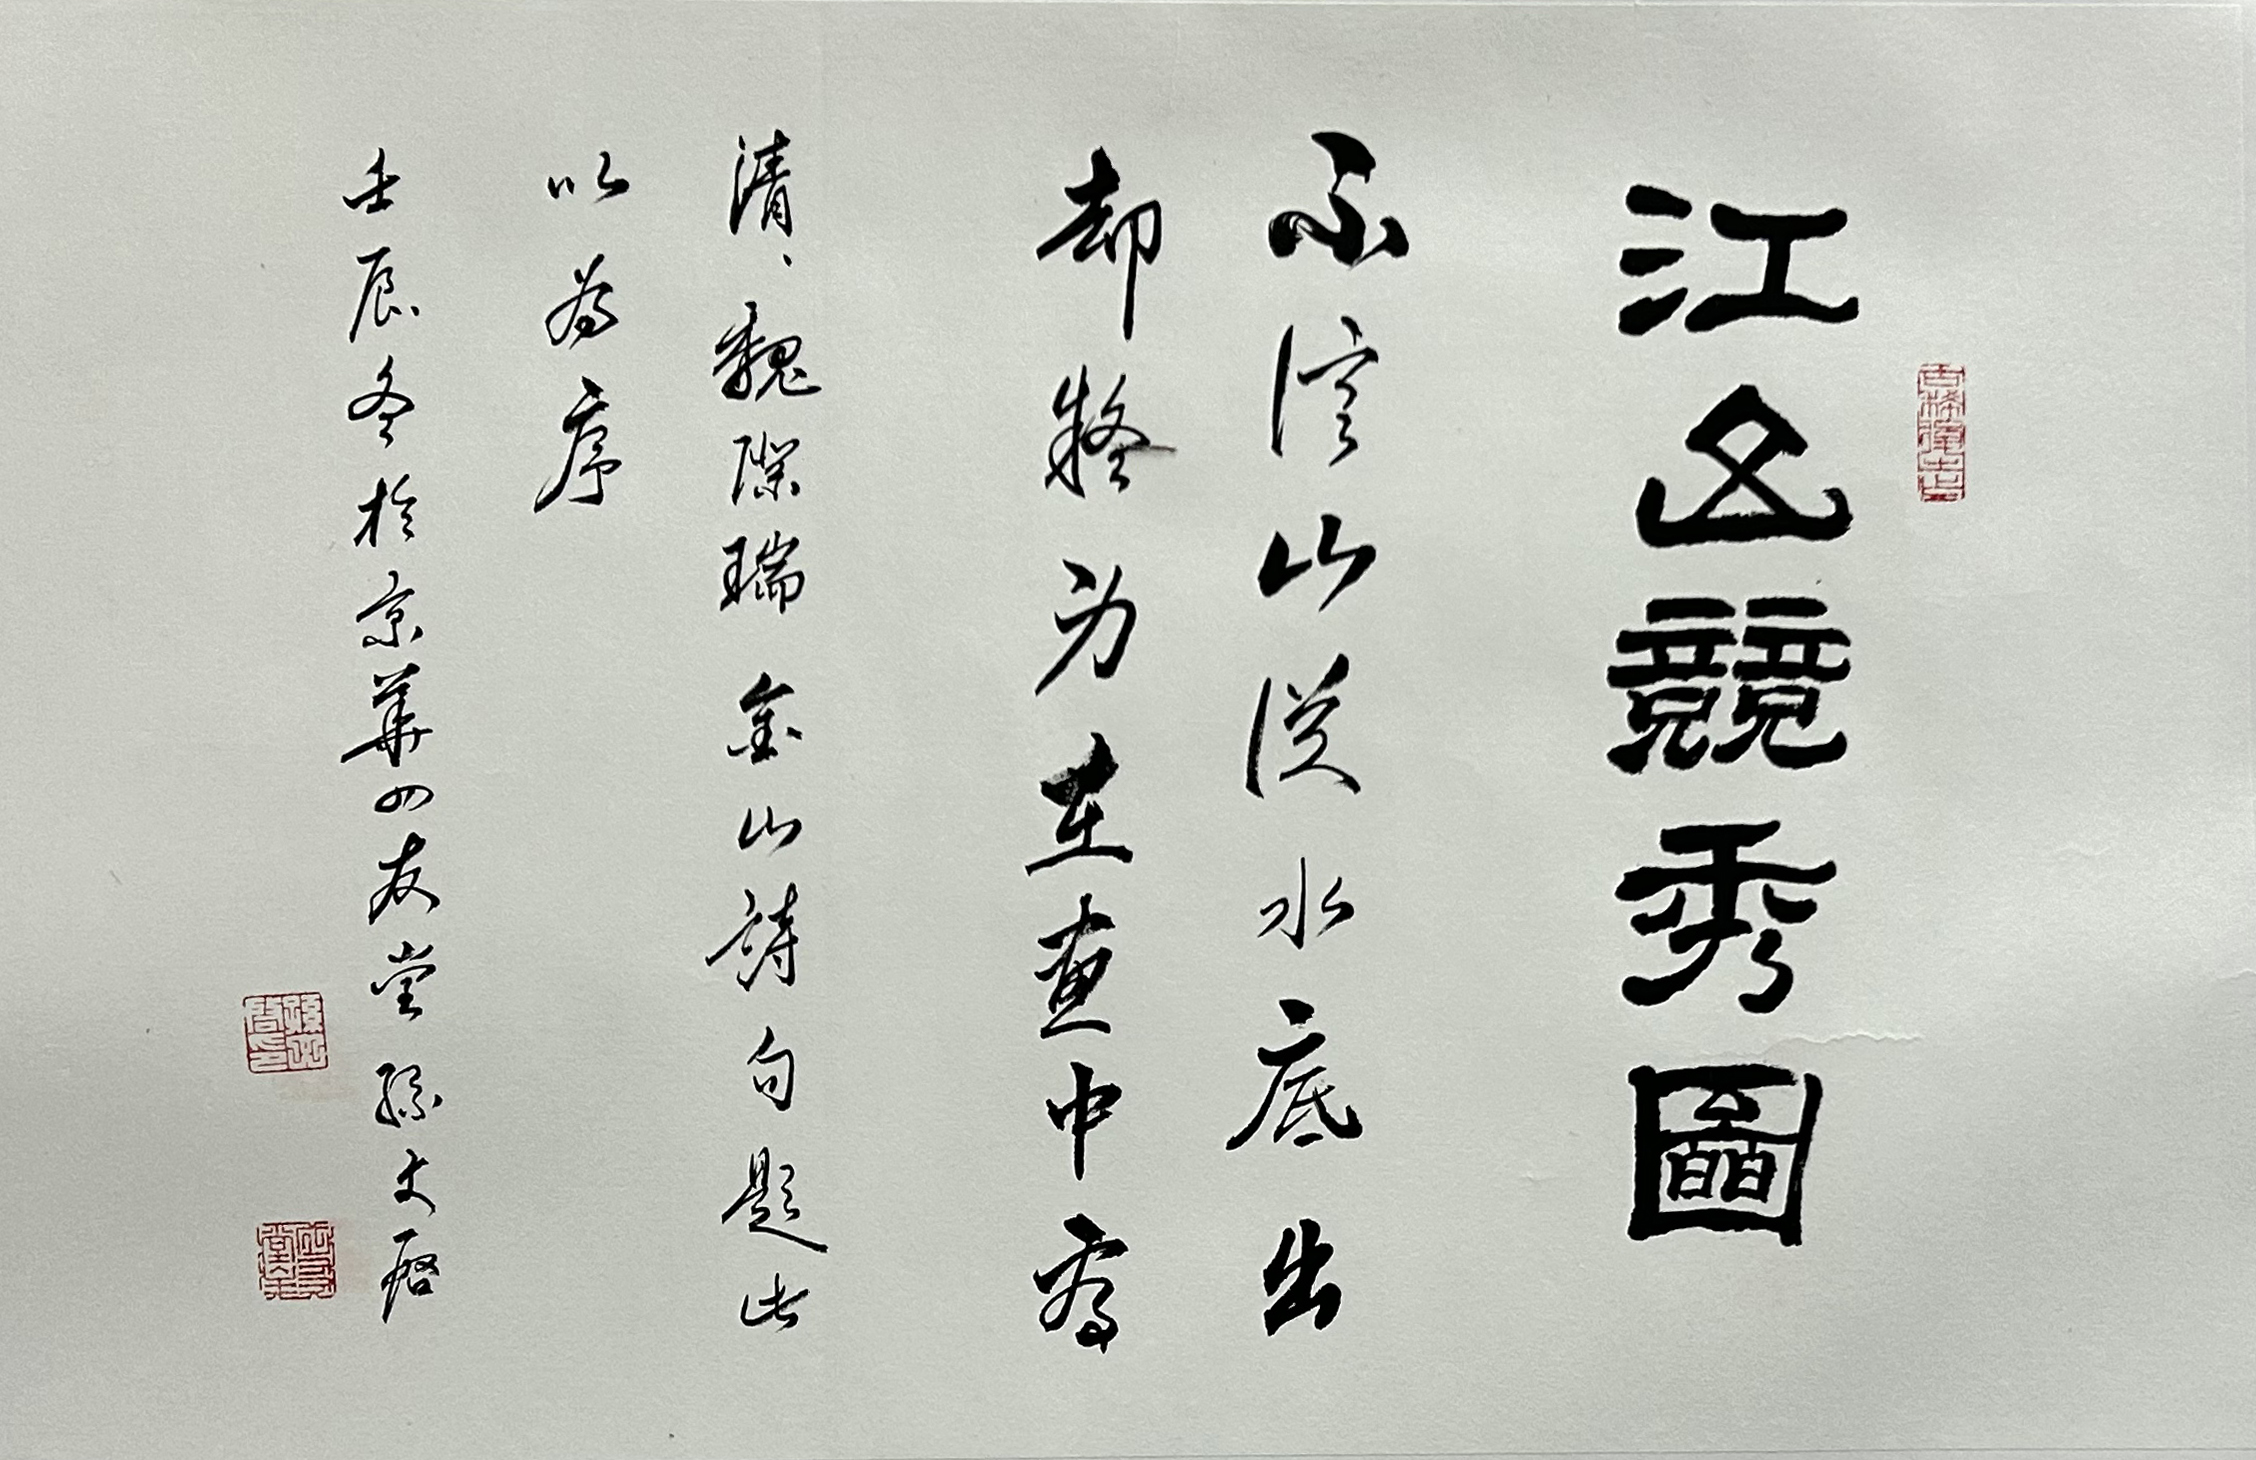 江山競秀圖
不信山從水底出
却疑身在畫中看
清、魏際瑞金山詩句題此
以為序
壬辰冬於京華四友堂孫文啓
孫文啓印